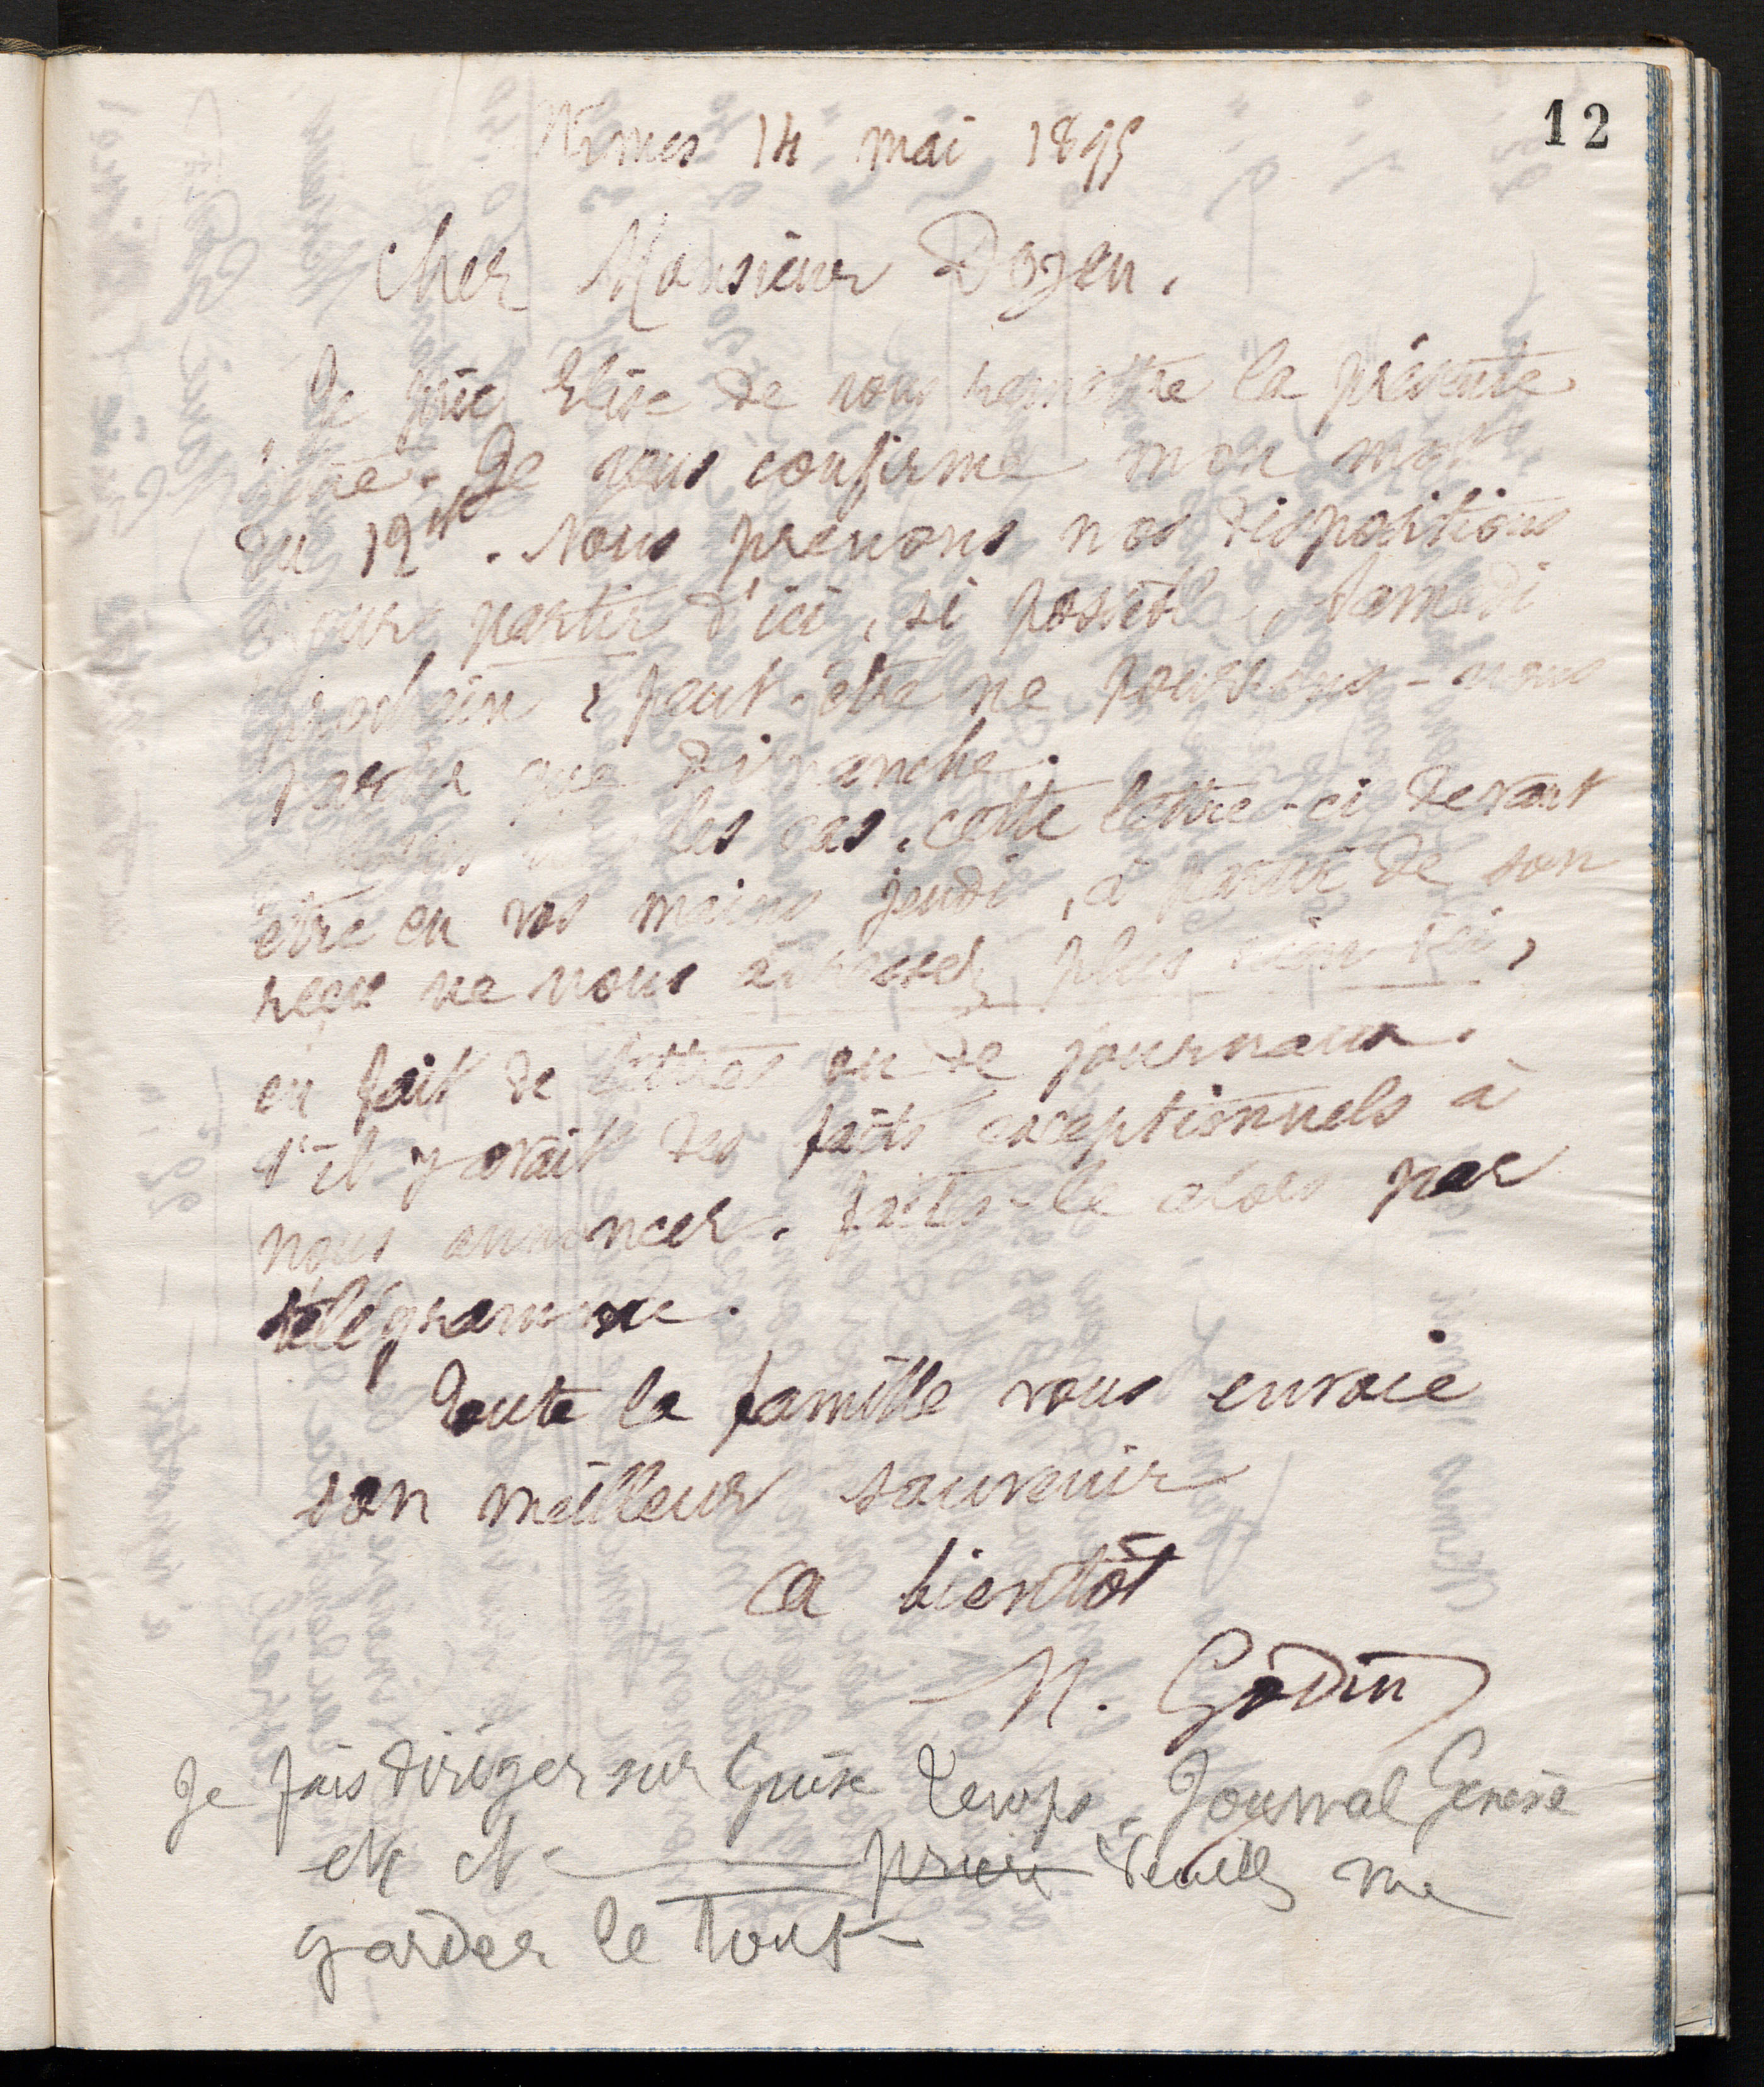 12
Nimes 14 mai 1895
Cher Monsieur Doyen.
Je prie Elise de vous remettre la présente
Je vous confirme mon mot
du 12 ct. Nous prenons nos dispositions
pour partir d'ici, si possible, samedi
prochain ; peut-être ne pourrons-nous
partir que dimanche.
les cas, cette lettre-ci devant
être en vos mains jeudi, à partir de son
reçu ne nous adressez plus rien ici,
en fait de lettres ou de journaux.
S'il y avait des faits exceptionnels à
nous annoncer. faites-le alors par
télégramme.
Toute la famille vous envoie
son meilleur souvenir
A bientôt
M. Godin
Je fais diriger sur Guise Temps, Journal Genève
etc etc prière Veuillez me
garder le tout